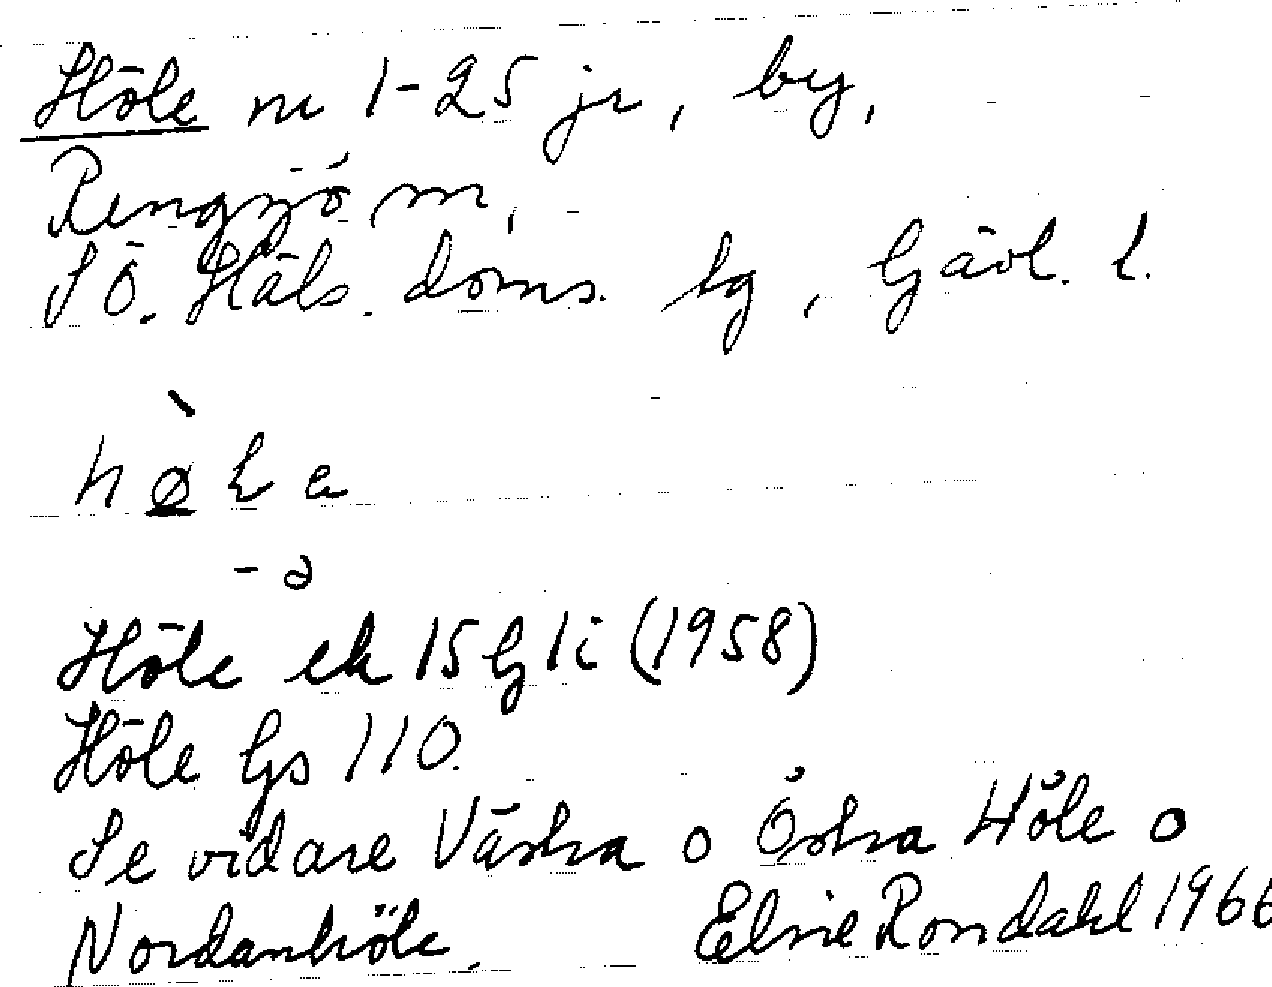 Höle nr 1-25 jr, by,
Rengsjö sn,
SÖ. Häls. doms. tg, Gävl. l.
hø̀le
-ə
Höle ek 15 G 1 i (1958)
Höle Gs 110.
Se vidare Västra o Östra Höle o
Nordanhöle. Elsie Rondahl 1966